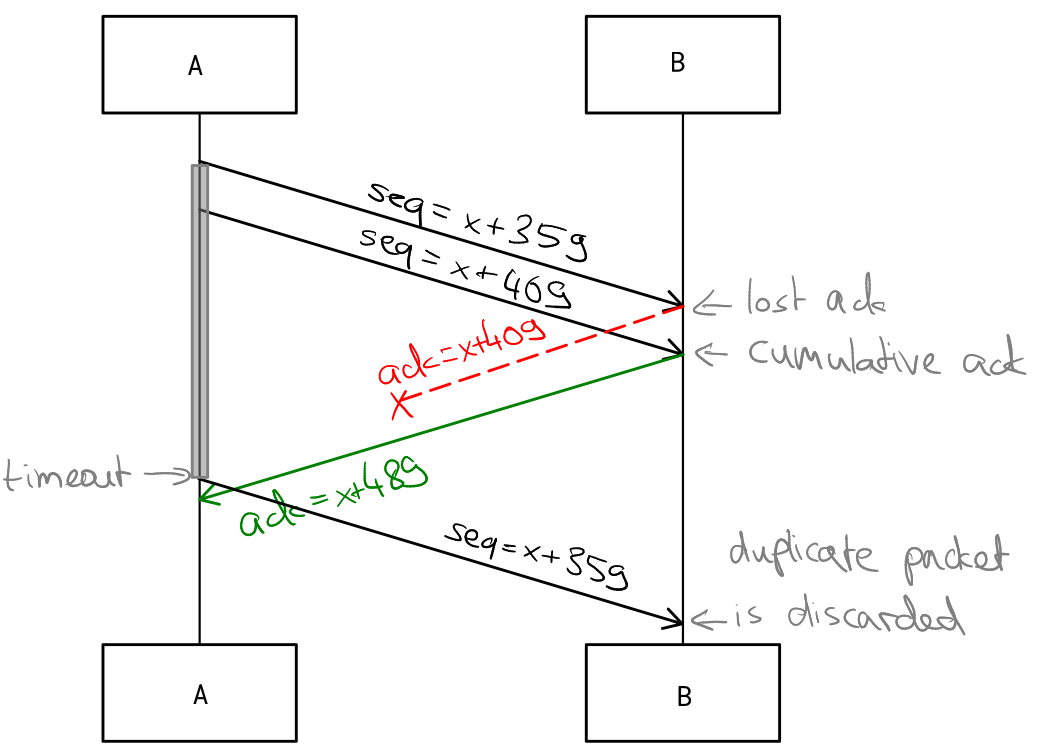 A
B
seq = x+359
seq = x+409
← lost ack
ack = x+409
← cumulative ack
X
timeout →
ack = x+489
seq = x+359
duplicate packet
← is discarded
A
B